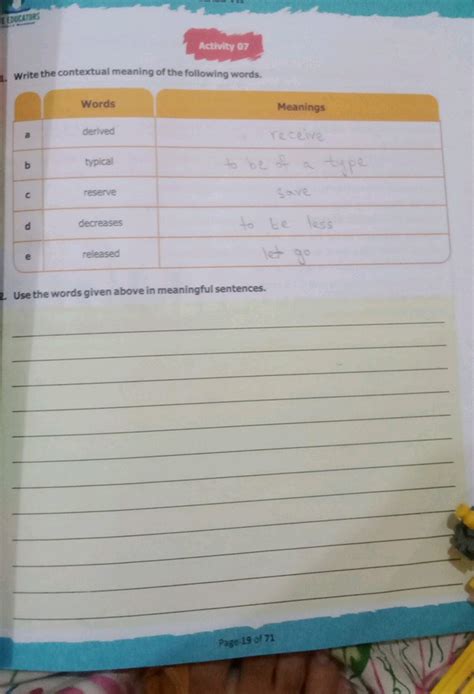 EDUCATORS
Activity 07
1. Write the contextual meaning of the following words.
Words Meanings
a derived receive
b typical to be of a type
c reserve save
d decreases to be less
e released let go
2. Use the words given above in meaningful sentences.
Page 19 of 71